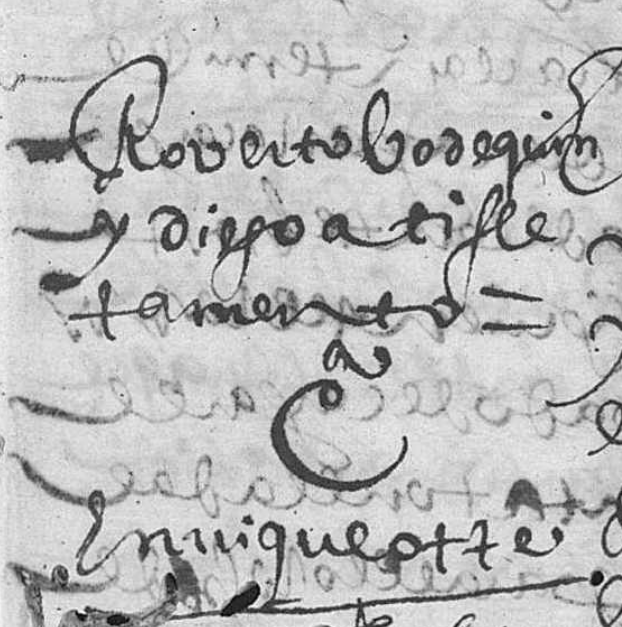 Roverto bodequin
y diego a tiſle
tamento =
a
C
Enrriqueotte